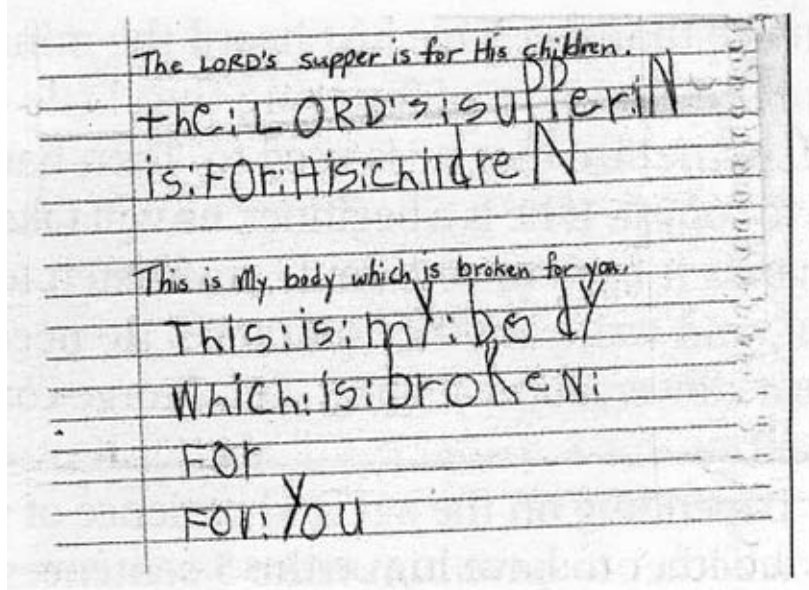 The LORD's supper is for His children.
the:LORD's:suPPer:iN
is:FOr:His:childreN
This is My body which is broken for you.
This:is:mY:bodY
Which:is:broKeN:
For
For:You